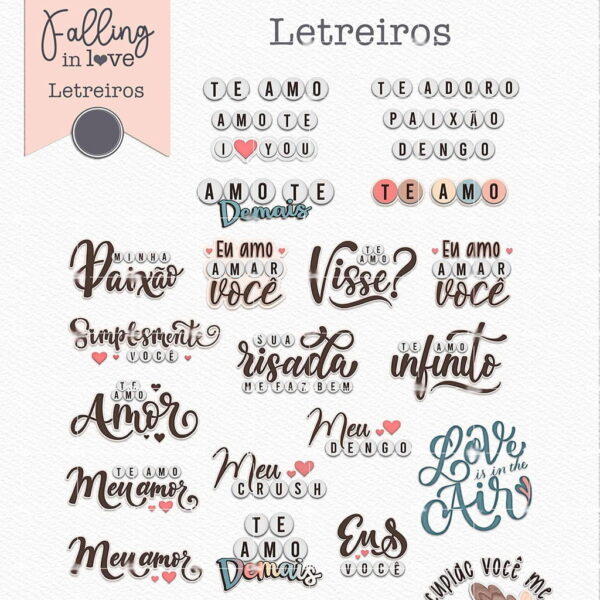 Falling
in love
Letreiros
Letreiros
TE AMO
AMO TE
I YOU
AMO TE
Demais
TE ADORO
PAIXÃO
DENGO
TE AMO
MINHA
Paixão
Eu amo
AMAR
VOCÊ
TE
AMO
Visse?
Eu amo
AMAR
VOCÊ
Simplesmente
VOCÊ
SUA
risada
ME FAZ BEM
TE AMO
infinito
TE
AMO
Amor
Meu
DENGO
Love
is in the
Air
TE AMO
Meu amor
Meu
CRUSH
Meu amor
TE
AMO
Demais
Eus
VOCÊ
cupido você me